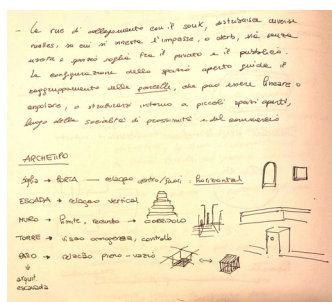 - Le rue di collegamento con il souk, distribuisce diverse
ruelles, su cui si innesta l'impasse, o derb, via senza
uscita e spazio soglia fra il privato e il pubblico.
La configurazione dello spazio aperto guida il
raggruppamento delle parcelle, che può essere lineare o
angolare, o strutturarsi intorno a piccoli spazi aperti,
luogo della socialità di prossimità e del commercio
ARCHETIPO
soglia → PORTA — relação dentro/fuori, horizontal
ESCADA → relação vertical
MURO → limite, recinto → CORRIDOIO
TORRE → visão, controllo
PATIO → relação pieno-vazio
↓
arquit.
escavada